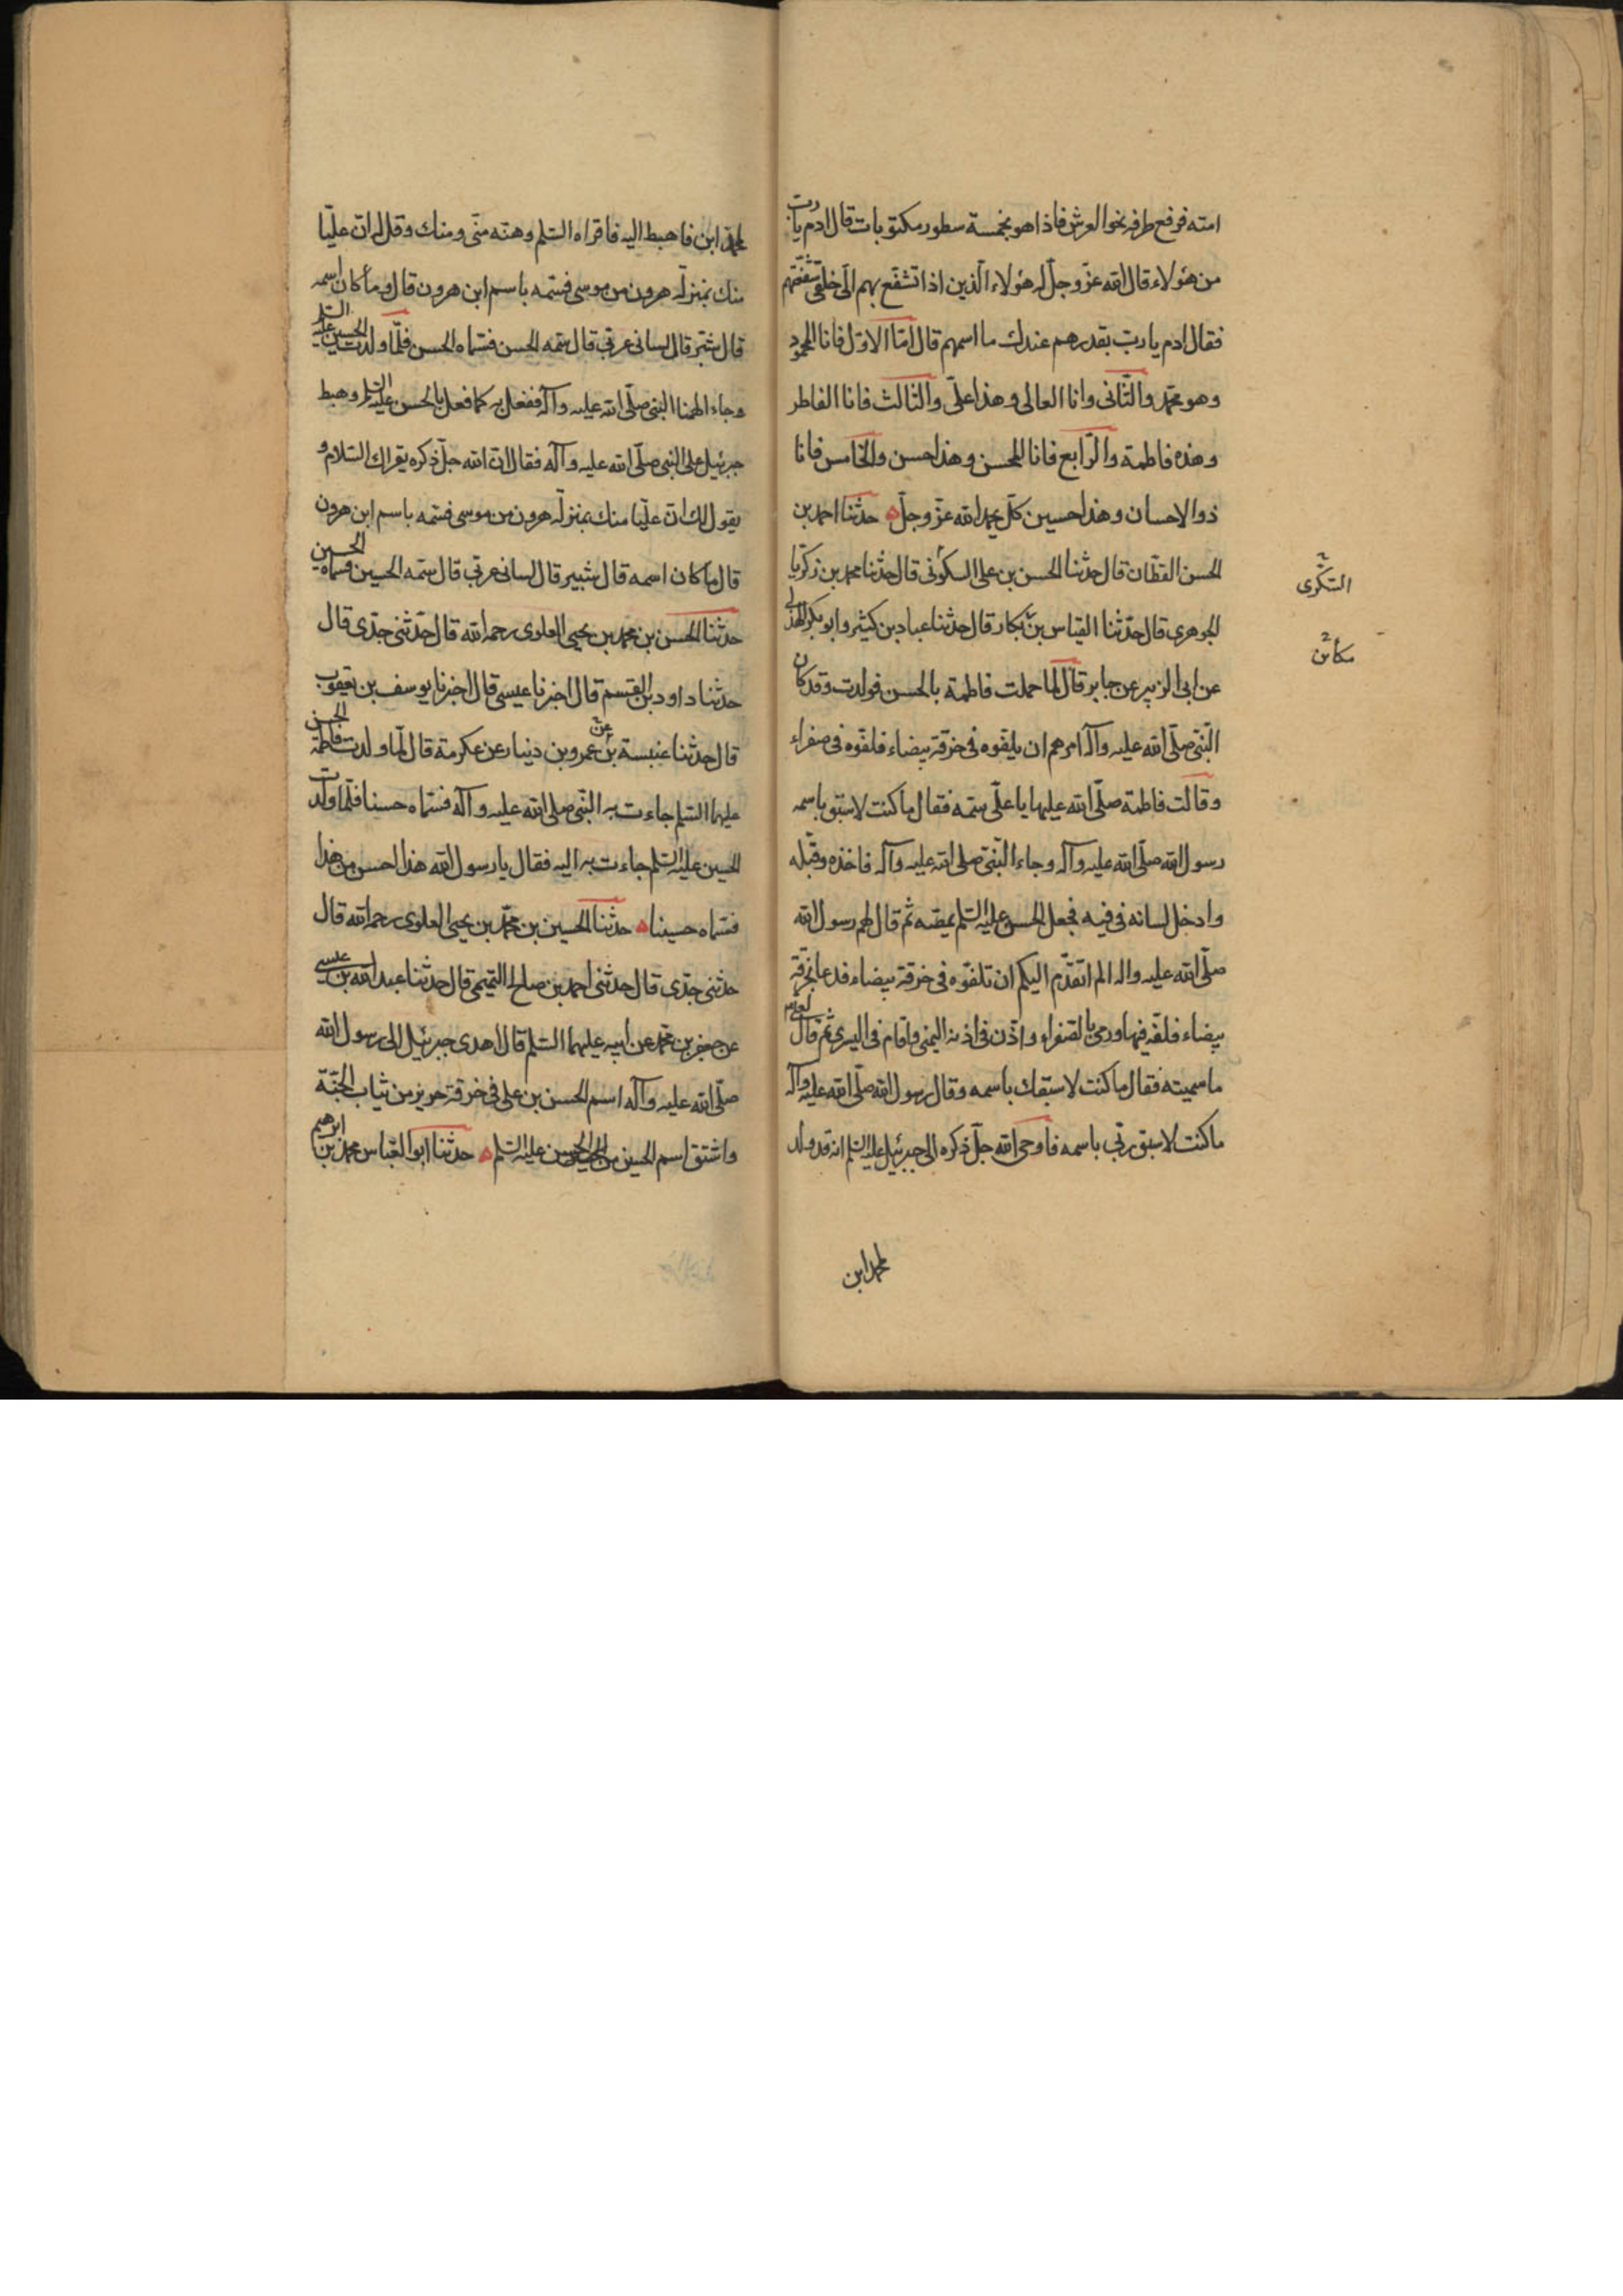 امته فرفع طرفه نحو العرش فاذا هو بخمسة سطور مكتوبات قال ادم يا رب
من هؤلاء قال الله عزّ وجلّ له هؤلاء الّذين اذا تشفّع بهم الىّ خلقى شفّعتهم
فقال ادم يا ربّ بقدرهم عندك ما اسمهم قال امّا الاوّل فانا المحمود
وهو محمّد والثّانى وانا العالى وهذا علىّ والثالث فانا الفاطر
وهذه فاطمة والرّابع فانا المحسن وهذا حسن والخامس فانا
ذو الاحسان وهذا حسين كلّ يحمد الله عزّ وجلّ ه حدّثنا احمد بن
الحسن القطّان قال حدّثنا الحسن بن على السكونى قال حدّثنا محمد بن زكريّا
السّكّرى
الجوهرى قال حدّثنا العبّاس بن بكار قال حدّثنا عباد بن كثير وابو بكر الهذلى
عن ابى الزبير عن جابر قال لمّا حملت فاطمة بالحسن فولدت وقد كان
النّبىّ صلّى الله عليه وآله امرهم ان يلفّوه فى خرقة بيضاء فلفّوه فى صفراء
وقالت فاطمة صلّى الله عليهما يا علىّ سمّه فقال ما كنت لاسبق باسمه
رسول الله صلّى الله عليه وآله وجاء النّبىّ صلى الله عليه وآله فاخذه وقبّله
وادخل لسانه فى فيه فجعل الحسن عليه السّلم يمصّه ثم قال لهم رسول الله
صلّى الله عليه واله الم اتقدّم اليكم ان تلفّوه فى خرقة بيضاء فدعا بخرقة
بيضاء فلفّه فيها ورمى بالصّفراء واذّن فى اذنه اليمنى واقام فى اليسرى ثمّ قال لعلى
ما سميته فقال ما كنت لاسبقك باسمه وقال رسول الله صلّى الله عليه وآله
ما كنت لاسبق ربّى باسمه فاوحى الله جلّ ذكره الى جبرئيل عليه السّلم انه قد ولد
لمحمد ابن
لمحمّد ابن فاهبط اليه فاقراه السّلم وهنّه منّى ومنك وقل له انّ عليّا
منك بمنزلة هرون من موسى فسمّه باسم ابن هرون قال وما كان اسمه
قال شبّر قال لسانى عربّى قال سمّه الحسن فسمّاه الحسن فلمّا ولدت الحسين عليه السلم
وجاء اليهم النبىّ صلّى الله عليه وآله ففعل به كما فعل بالحسن عليه السلم وهبط
جبرئيل على النبى صلّى الله عليه وآله فقال انّ الله جلّ ذكره يقراك السّلام و
يقول لك انّ عليّا منك بمنزلة هرون من موسى فسمّه باسم ابن هرون
قال ما كان اسمه قال شبير قال لسانى عربّى قال سمّه الحسين فسماه الحسين
حدّثنا الحسن بن محمد بن يحيى العلوى رحمه الله قال حدّثنى جدّى قال
حدّثنا داود بن القسم قال اخبرنا عيسى قال اخبرنا يوسف بن يعقوب
قال حدّثنا عنبسة بن عمرو بن دينار عن عكرمة قال لمّا ولدت فاطمة الحسن
عليهما السّلم جاءت به النّبىّ صلى الله عليه وآله فسمّاه حسنا فلمّا ولدت
الحسين عليه السّلم جاءت به اليه فقال يا رسول الله هذا احسن من هذا
فسمّاه حسينا ه حدّثنا الحسين بن محمّد بن يحيى العلوى رحمه الله قال
حدثنى جدّى قال حدثنى احمد بن صالح التميمى قال حدّثنا عبد الله بن عيسى
عن جعفر بن محمّد عن ابيه عليهما السّلم قال اهدى جبرئيل الى رسول الله
صلّى الله عليه وآله اسم الحسن بن على فى خرقة حرير من ثياب الجنّة
واشتق اسم الحسين من الحسن عليه السّلم ه حدّثنا ابو العبّاس محمد بن ابرهيم